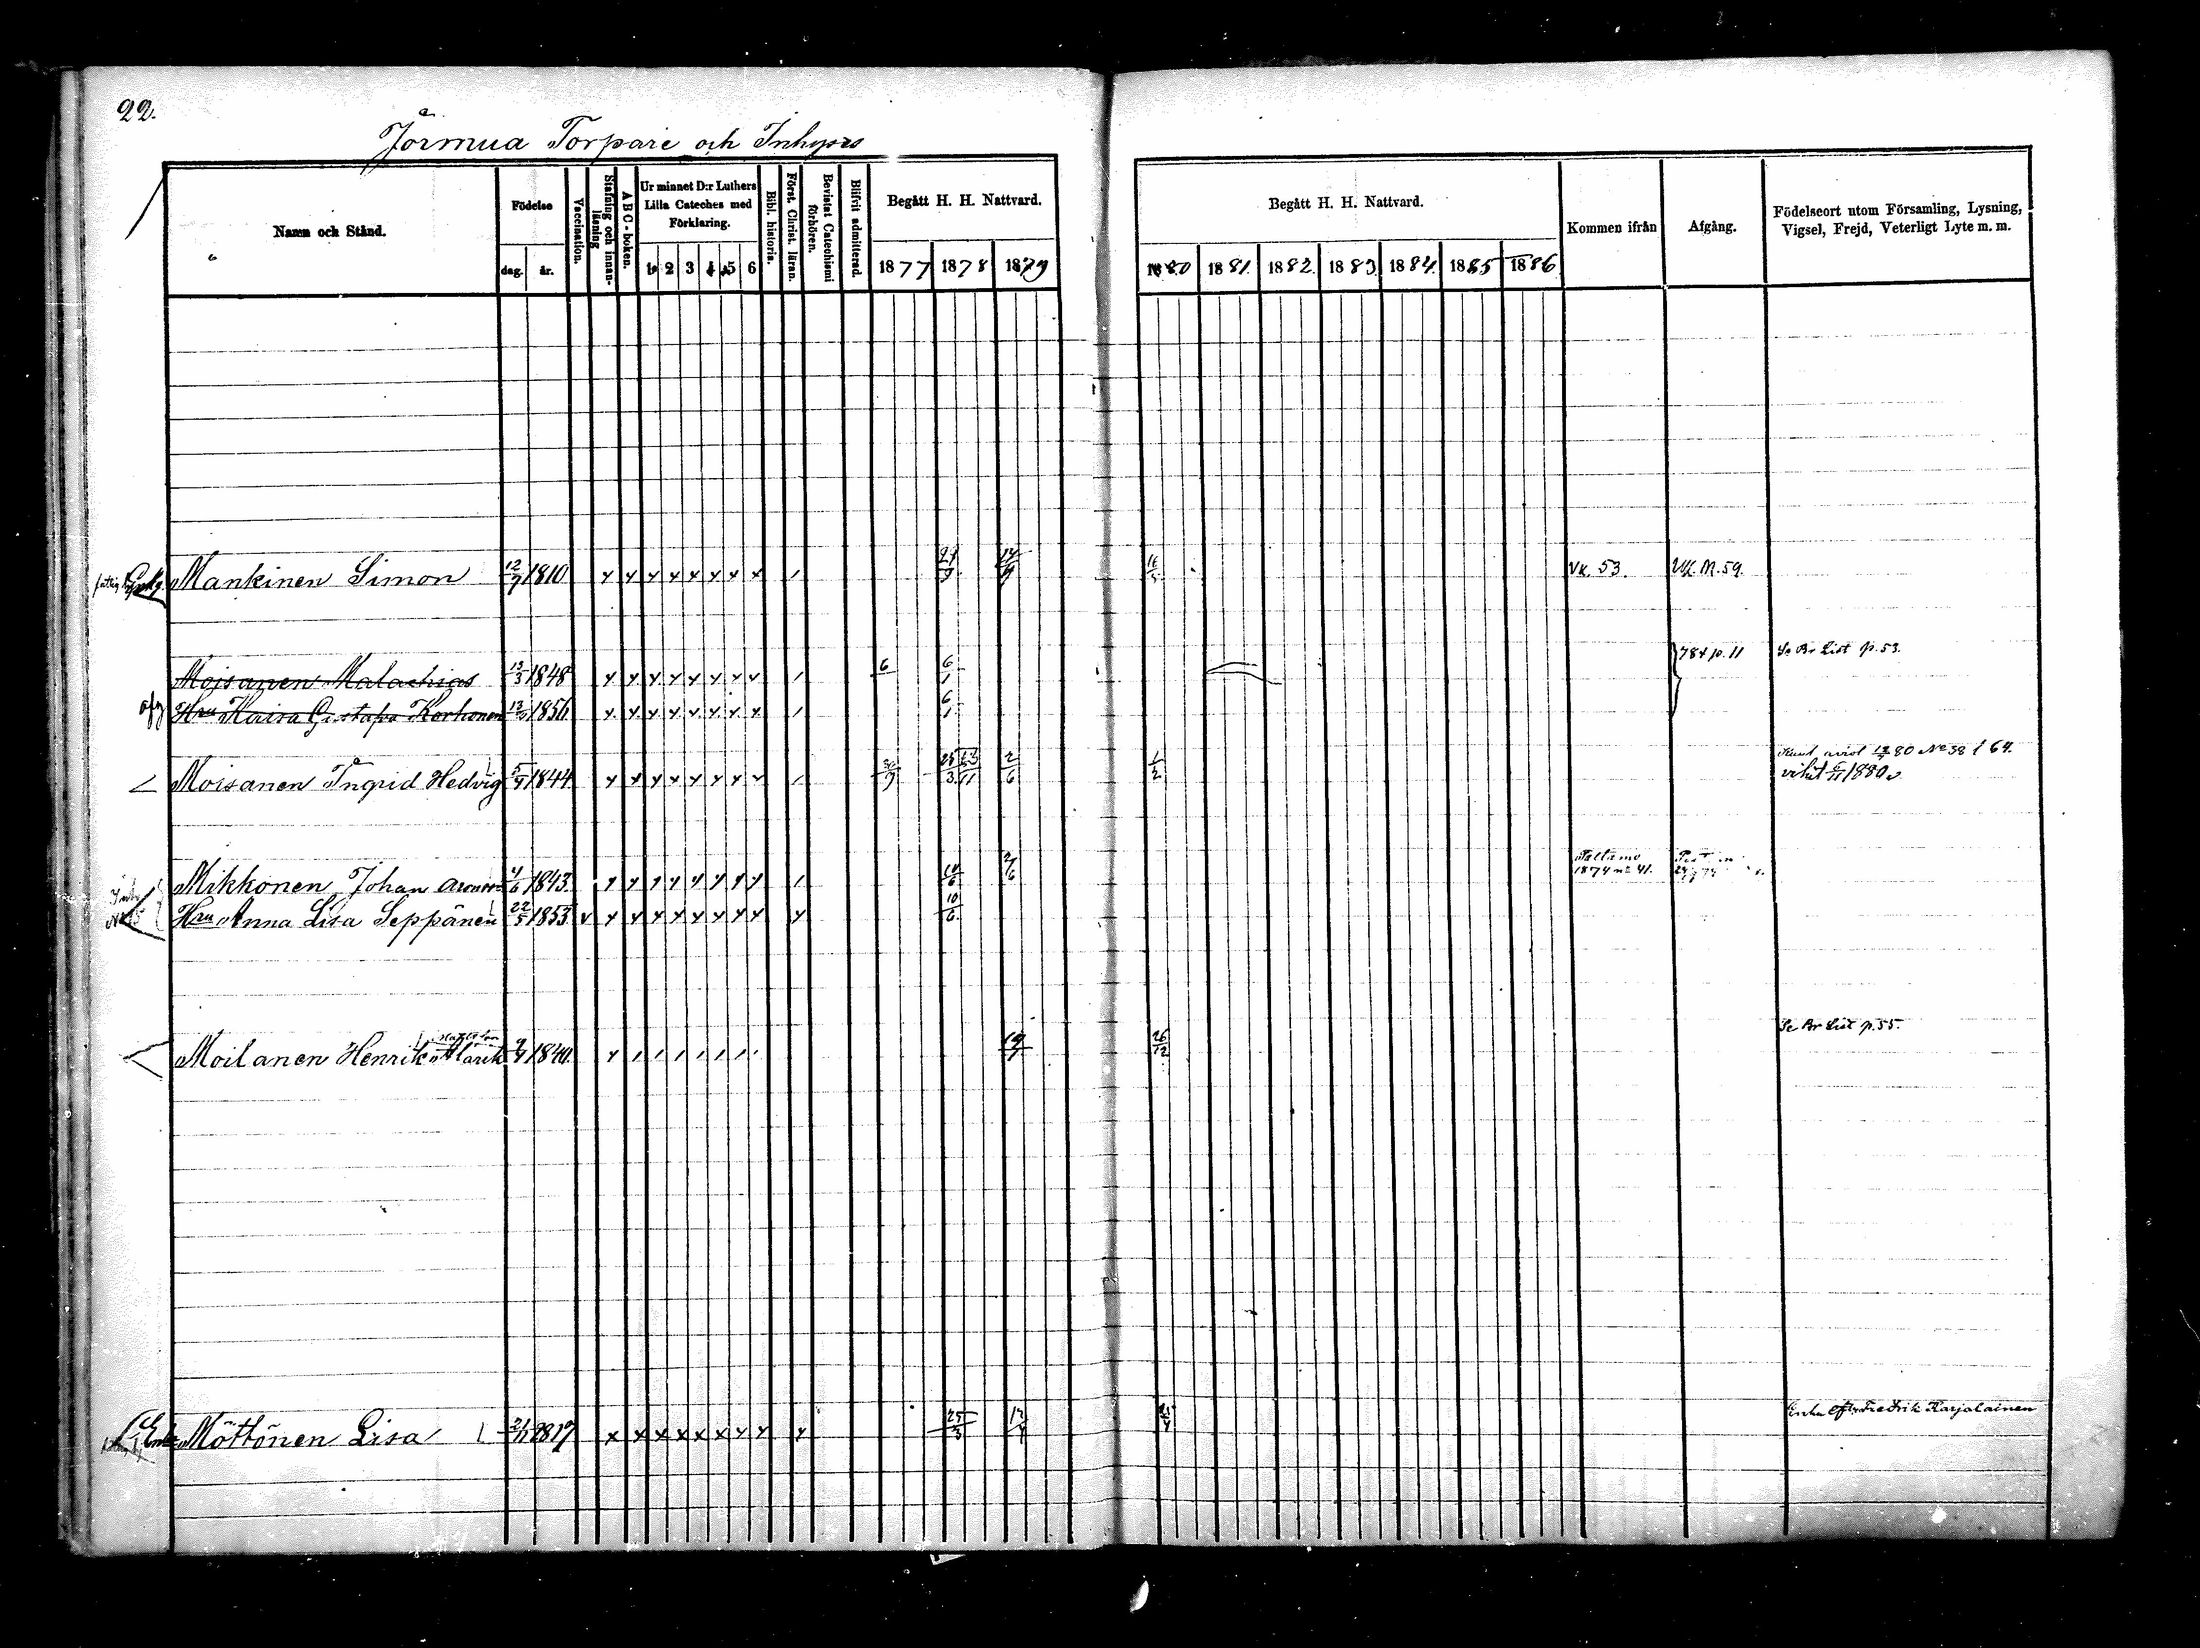 22.
Jormua Torpare och Inhyses
Namn och Stånd.
Födelse
dag. år.
Vaccination.
Stafning och innanläsning
A B C - boken.
Ur minnet D:r Luthers Lilla Cateches med Förklaring.
1 2 3 4 5 6
Bibl. historia.
Först. Christ. läran.
Bevistat Catechismi förhören.
Blifvit admitterad.
Begått H. H. Nattvard.
1877 1878 1879
Begått H. H. Nattvard.
1880 1881 1882 1883 1884 1885 1886
Kommen ifrån
Afgång.
Födelseort utom Församling, Lysning, Vigsel, Frejd, Veterligt Lyte m. m.
Mankinen Simon 12/9 1810 x x x x x x x x / 29/9 14/9 Vk. 53. 59.
Moisanen Malachias 13/3 1848 x x x x x x x x / 6 6/1 78 p. 11 Se Br List p. 53.
Hru Kaisa Gustafva Korhonen 1856 x x x x x x x x / 6/1
Moisanen Ingrid Hedvig 5/4 1844 x x x x x x x x / 2/6 1/2 80 No 58 f 64.
vihit 1880
Mikkonen Johan Aronson 4/6 1843 x x x x x x x x / 10/6 2/6 Paltamo
1874 no 41.
Hru Anna Lisa Seppänen 22/5 1853 v x x x x x x x x x 10/6
Moilanen Henrik 9/4 1840 x / / / / / / / 26/12 Se Br List p. 55.
Enka Möttönen Lisa 1817 x x x x x x x x x 25/3 Enka eft. Fredrik Karjalainen